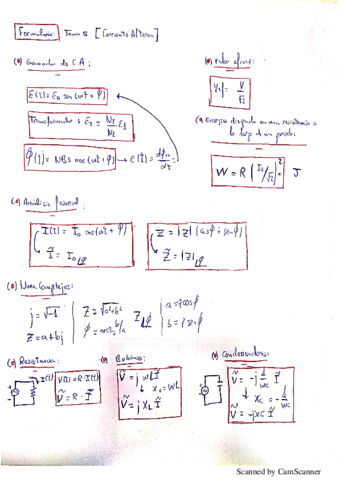 Formulario: Tema 5 [Corriente Alterna]
(*) Generador de C.A:
ε(t) = ε₀ sen(ωt + φ)
Transformador: ε₂ = N₂/N₁ ε₁
Φ(t) = NBS cos(ωt + φ) → ε(t) = dΦm/dt =
(*) Valor eficaz:
Vef = V/√2
(*) Energía disipada en una resistencia a
lo largo de un periodo:
W = R (I₀/√2)² J
(*) Análisis fasorial:
I(t) = I₀ cos(ωt + φ)
Ĩ = I₀ ∠φ
Z = |Z| (cosφ + j senφ)
Z̃ = |Z| ∠φ
(*) Num Complejos:
j = √-1
z = a + bj
Z = √a²+b²
φ = arctg b/a
Z ∠φ
a = z cosφ
b = z senφ
(*) Resistencias:
I(t)
V(t) = R · I(t)
Ṽ = R · Ĩ
(*) Bobinas:
Ṽ = j ωL Ĩ
X_L = ωL
Ṽ = j X_L Ĩ
(*) Condensadores:
Ṽ = -j 1/ωC Ĩ
Xc = 1/ωC
Ṽ = -j Xc Ĩ
Scanned by CamScanner